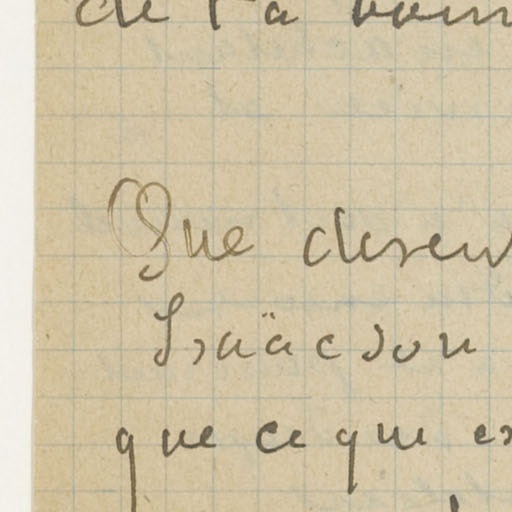 de la
Que devien
Isaäcson
que ce que